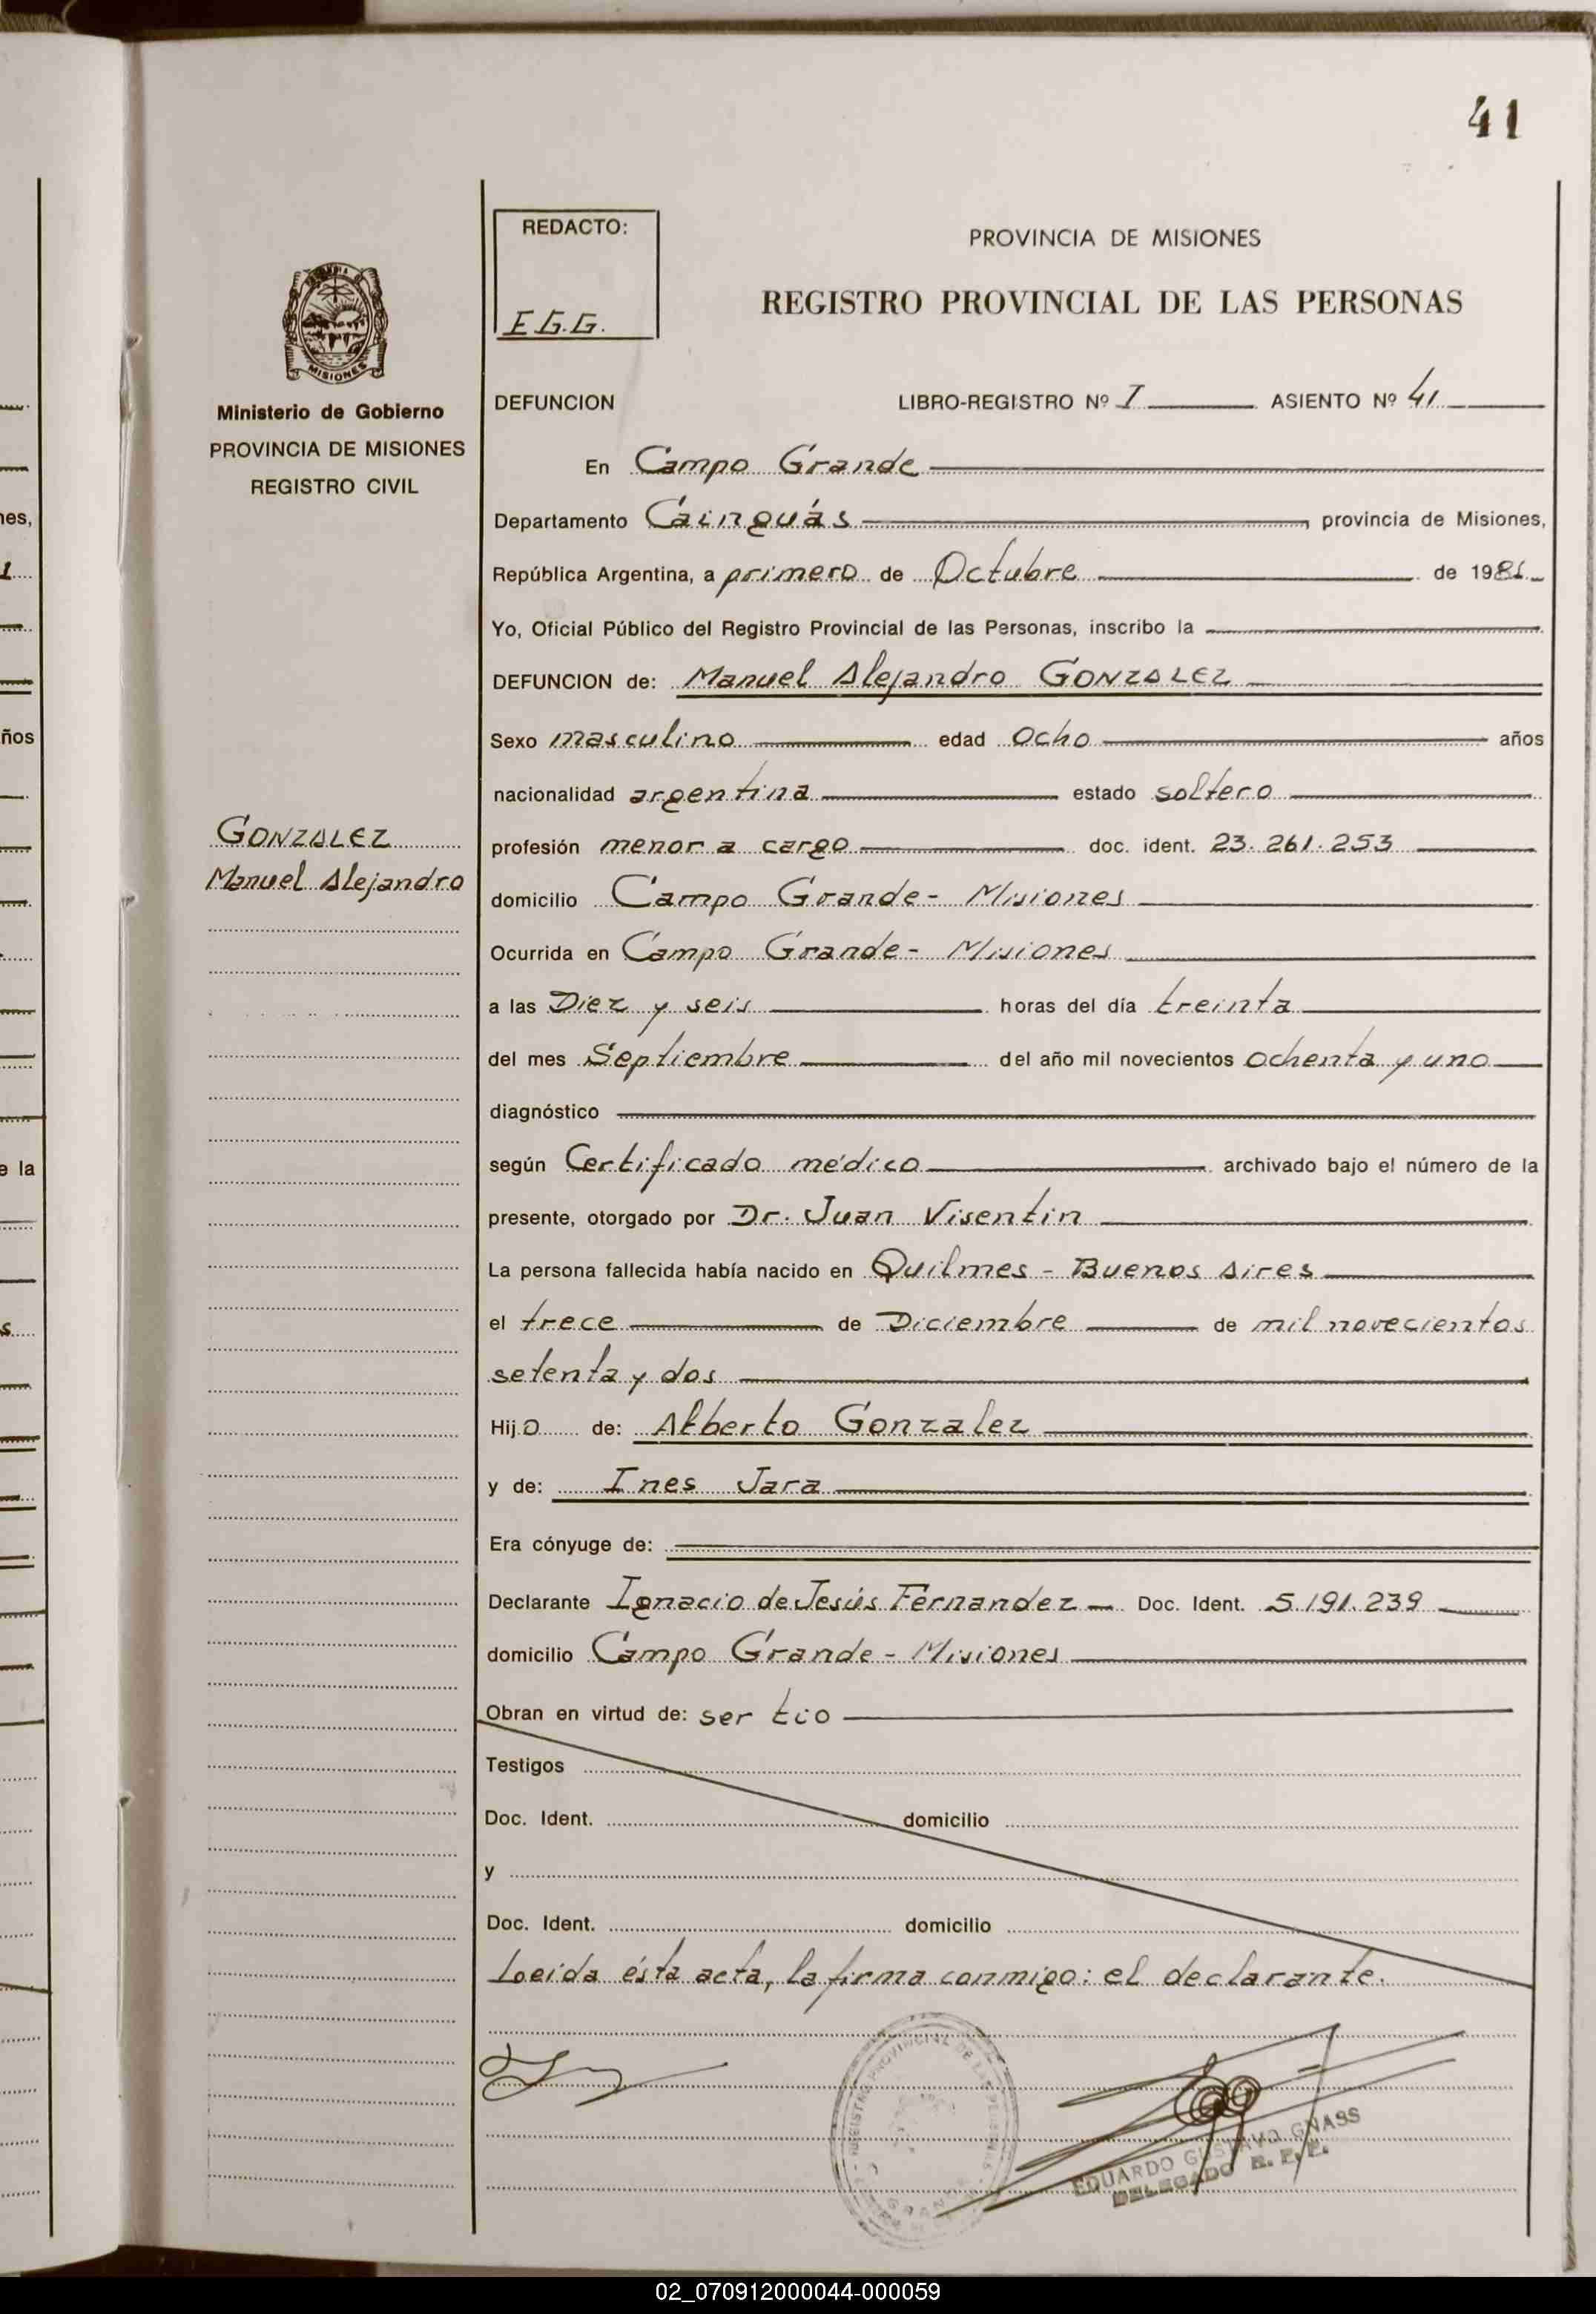 41
REDACTO:
E.G.G.
PROVINCIA DE MISIONES
REGISTRO PROVINCIAL DE LAS PERSONAS
MISIONES
Ministerio de Gobierno
PROVINCIA DE MISIONES
REGISTRO CIVIL
DEFUNCION LIBRO-REGISTRO Nº I ASIENTO Nº 41
En Campo Grande
Departamento Cainguás, provincia de Misiones,
República Argentina, a primero de Octubre de 1981
Yo, Oficial Público del Registro Provincial de las Personas, inscribo la
DEFUNCION de: Manuel Alejandro GONZALEZ
Sexo masculino edad ocho años
nacionalidad argentina estado soltero
GONZALEZ
Manuel Alejandro
profesión menor a cargo doc. ident. 23.261.253
domicilio Campo Grande - Misiones
Ocurrida en Campo Grande - Misiones
a las Diez y seis horas del día treinta
del mes Septiembre del año mil novecientos ochenta y uno
diagnóstico
según Certificado médico archivado bajo el número de la
presente, otorgado por Dr. Juan Visentin
La persona fallecida había nacido en Quilmes - Buenos Aires
el trece de Diciembre de mil novecientos
setenta y dos
Hijo de: Alberto Gonzalez
y de: Ines Jara
Era cónyuge de:
Declarante Ignacio de Jesús Fernandez Doc. Ident. 5.191.239
domicilio Campo Grande - Misiones
Obran en virtud de: ser tio
Testigos
Doc. Ident. domicilio
y
Doc. Ident. domicilio
Loeida ésta acta, la firma conmigo: el declarante.
REGISTRO PROVINCIAL DE LAS PERSONAS
EDUARDO GUSTAVO GNASS
DELEGADO R. P. P.
02_070912000044-000059